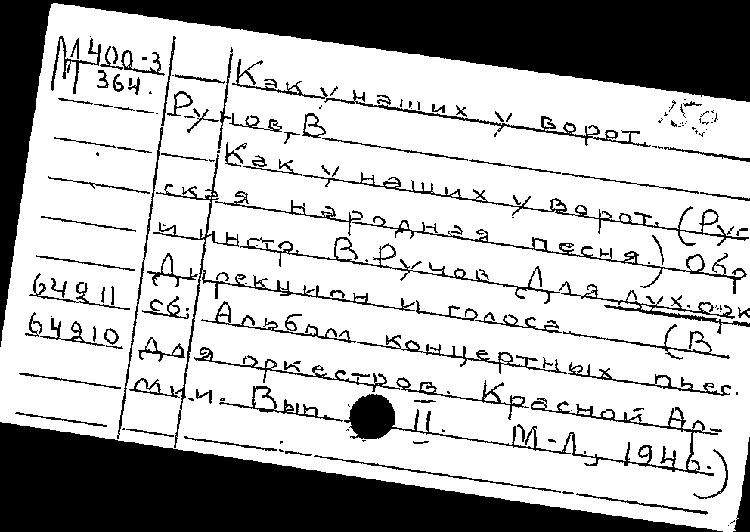 М 400-3
М 364.
Как у наших у ворот.
159
Рунов, В
Как у наших у ворот. (Рус
ская народная песня.) Обр
и инстр. В. Рунов Для дух. орк
Дирекцион и голоса. (В
64911
сб: Альбом концертных пьес.
64910
для оркестров. Красной Ар-
мии. Вып. II. М-Л., 1946.)